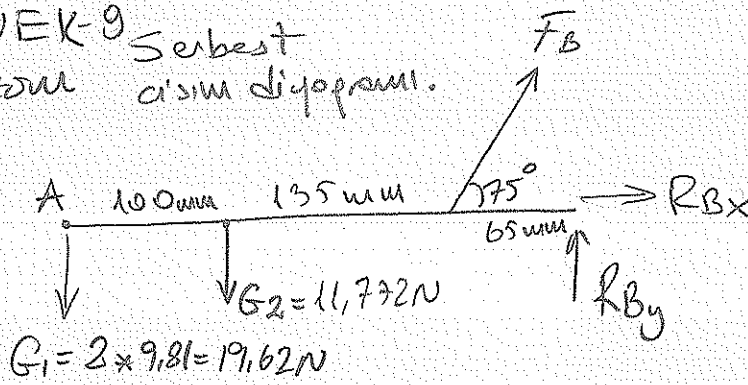 EK-9 Serbest
cisim diyagramı.
F_B
A 100mm 135mm 75° R_Bx
65mm
G₂=11,772N R_By
G₁=2×9,81=19,62N